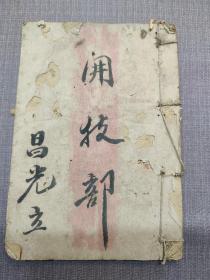 開技部
昌光立